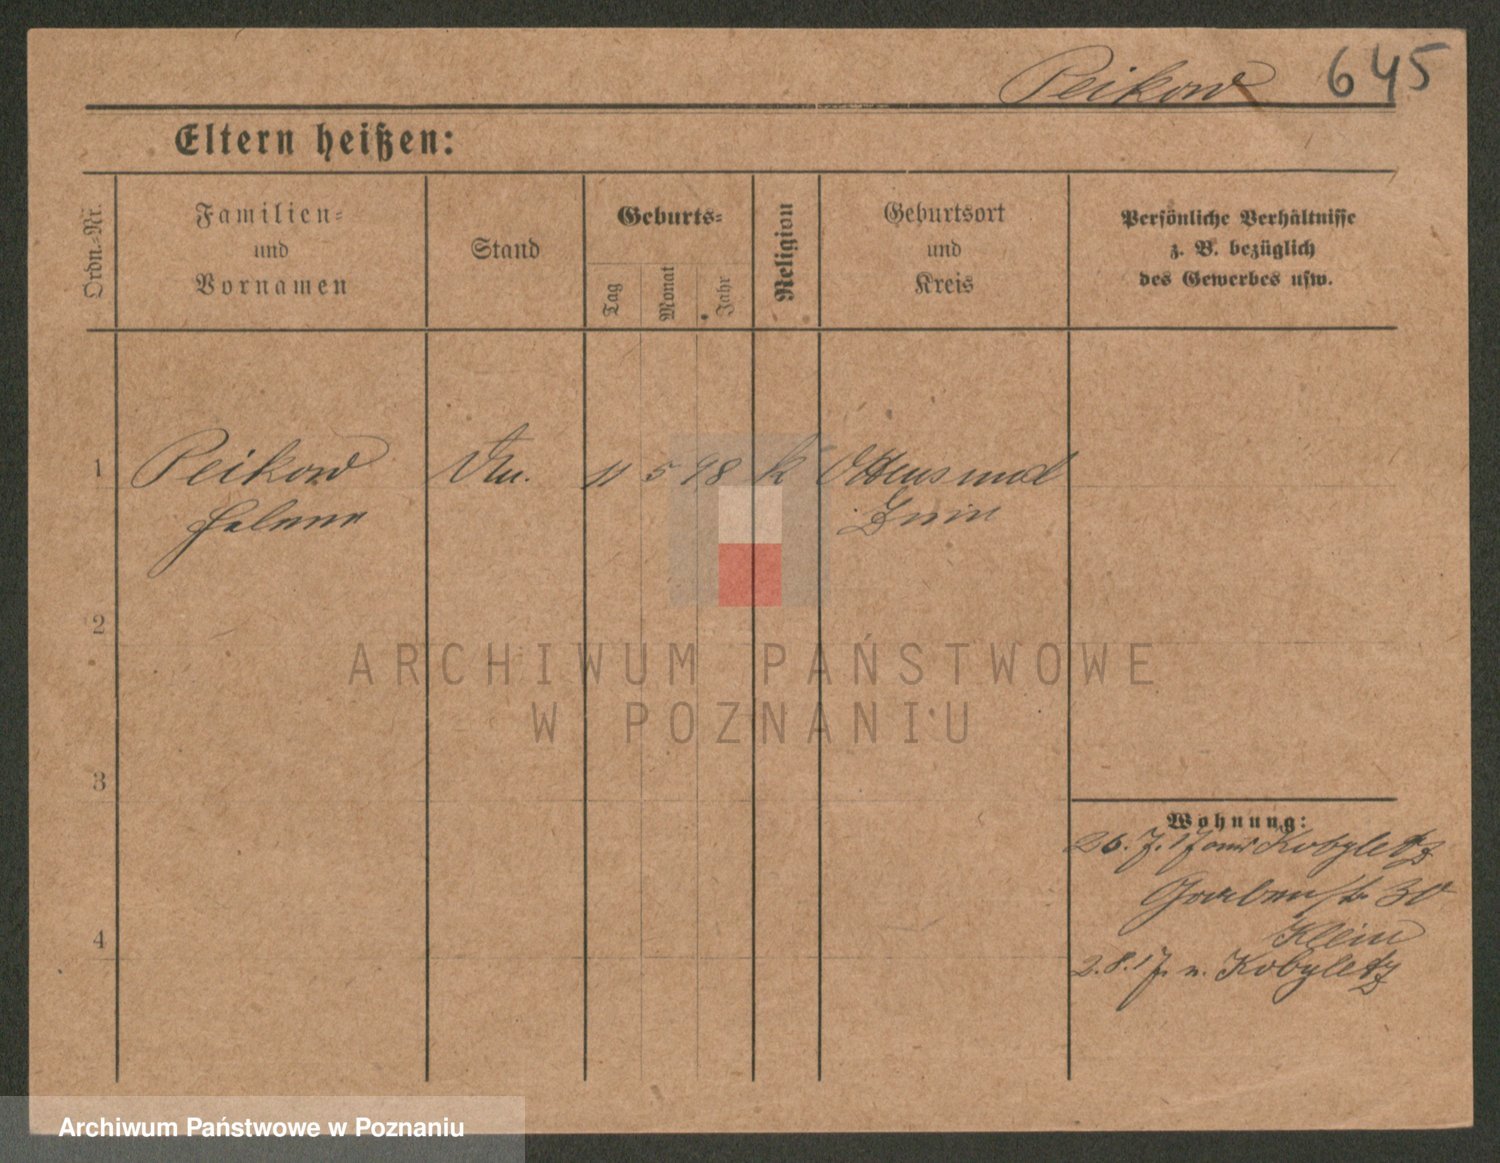 Peikow 645
Eltern heißen:
Ordn.-Nr.
Familien-
und
Vornamen
Stand
Geburts-
Tag
Monat
Jahr
Religion
Geburtsort
und
Kreis
Persönliche Verhältnisse
z. B. bezüglich
des Gewerbes usw.
1 Peikow 11 5 98 K
Helene Znin
2
ARCHIWUM PAŃSTWOWE
W POZNANIU
3
Wohnung:
26. 7. 17 aus Kobyletz
Grabenstr 30
Klein
4
2. 8. 17. n. Kobyletz
Archiwum Państwowe w Poznaniu